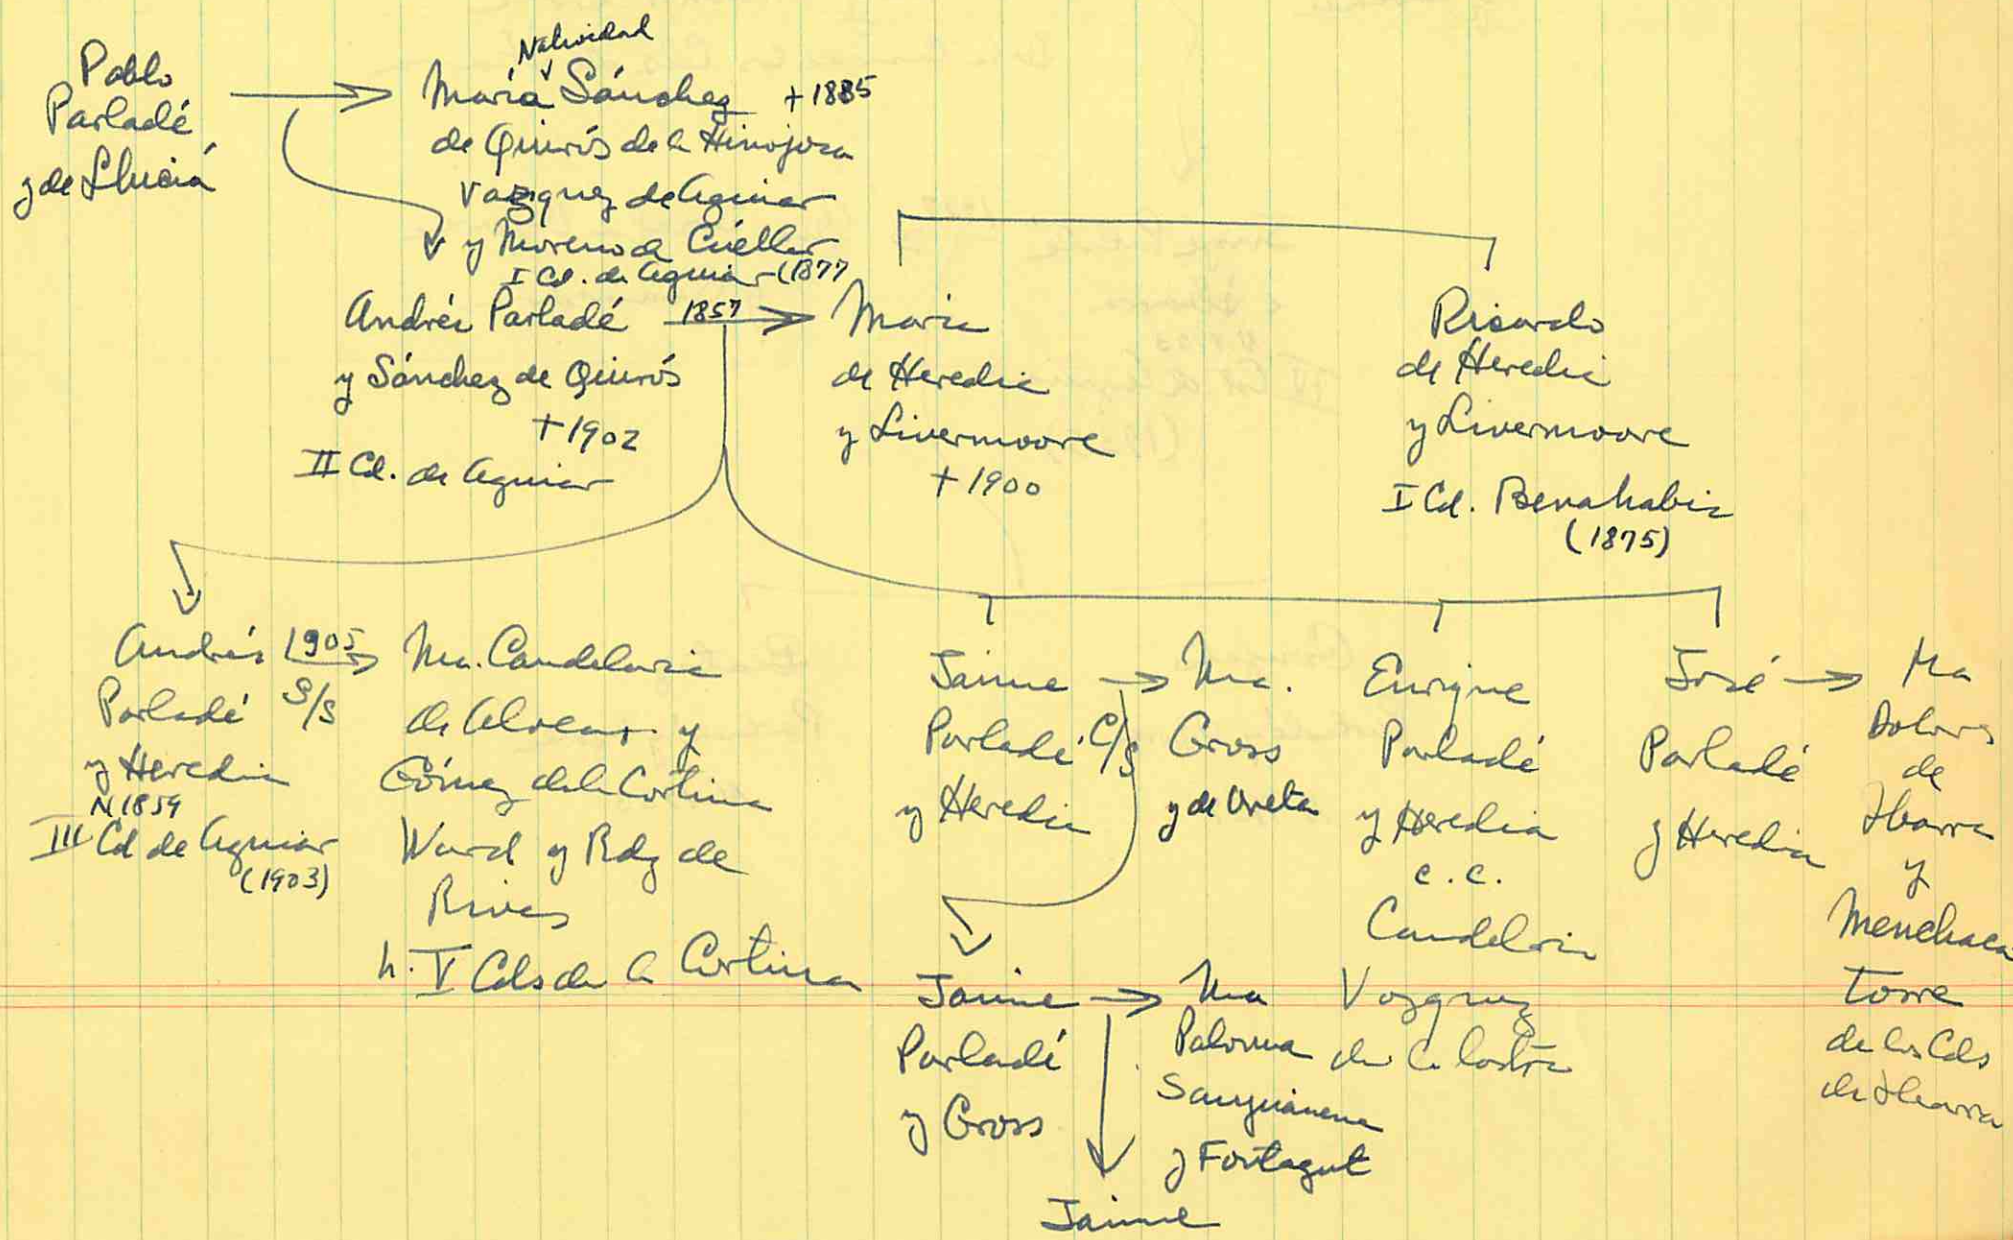 Pablo
Parladé
y de Lluciá
Natividad
María Sánchez +1885
de Quirós de la Hinojosa
Vazquez de Aguiar
y Moreno de Cuéllar
I Cd. de Aguiar (1877
Andrés Parladé 1857
y Sánchez de Quirós
+1902
II Cd. de Aguiar
Maria
de Heredia
y Livermoore
+1900
Ricardo
de Heredia
y Livermoore
I Cd. Benahabis
(1875)
Andrés 1905
Parladé S/S
y Heredia
N 1859
III Cd de Aguiar
(1903)
Ma. Candelaria
de Alvear y
Gómez de la Cortina
Ward y Rdz de
Rivas
h. V Cds de la Cortina
Jaime
Parladé C/S
y Heredia
Ma.
Gross
y de Orueta
Enrique
Parladé
y Heredia
c.c.
Candelaria
Vazquez
de la Lastra
José
Parladé
y Heredia
Ma
Dolores
de
Ibarra
y
Menchaca
Torre
de los Cds
de Ibarra
Jaime
Parladé
y Gross
Ma
Paloma
y Fontagut
Jaime